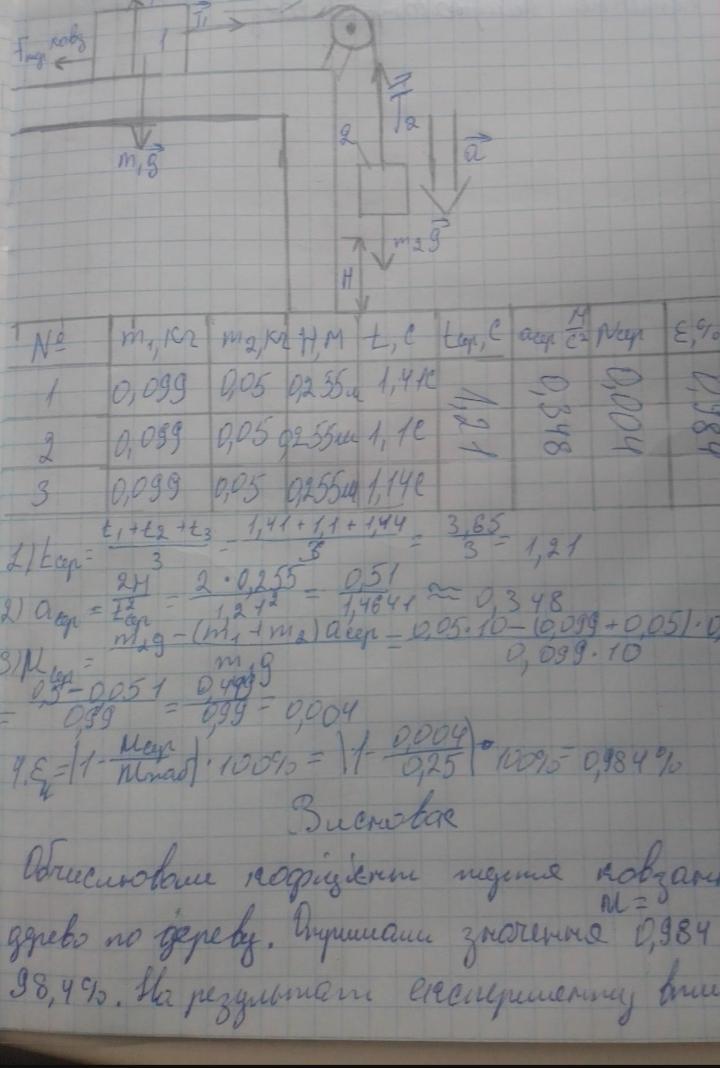 Fтер ковз
1
T₁
m₁g
T₂
2
a
m₂g
H
№ m₁, кг m₂, кг H, м t, c tсер, c aсер м/с² μсер ε, %
1 0,099 0,05 0,255м 1,41с 1,21 0,348 0,004 0,984
2 0,099 0,05 0,255м 1,1с
3 0,099 0,05 0,255м 1,14с
1) tсер = (t₁+t₂+t₃)/3 = (1,41+1,1+1,14)/3 = 3,65/3 = 1,21
2) aсер = 2H/t²сер = (2·0,255)/1,21² = 0,51/1,4641 ≈ 0,348
3) μсер = (m₂g-(m₁+m₂)aсер)/(m₁g) = (0,05·10-(0,099+0,05)·0,
0,099·10
= (0,5-0,051)/0,99 = 0,499/0,99 = 0,004
4. ε = |1-μсер/μтаб|·100% = |1-0,004/0,25|·100% = 0,984%
Висновок
Обчислювали кофіцієнт тертя ковзан
μ=
дерево по дереву. Отримали значення 0,984
98,4%. На результат експерименту впли